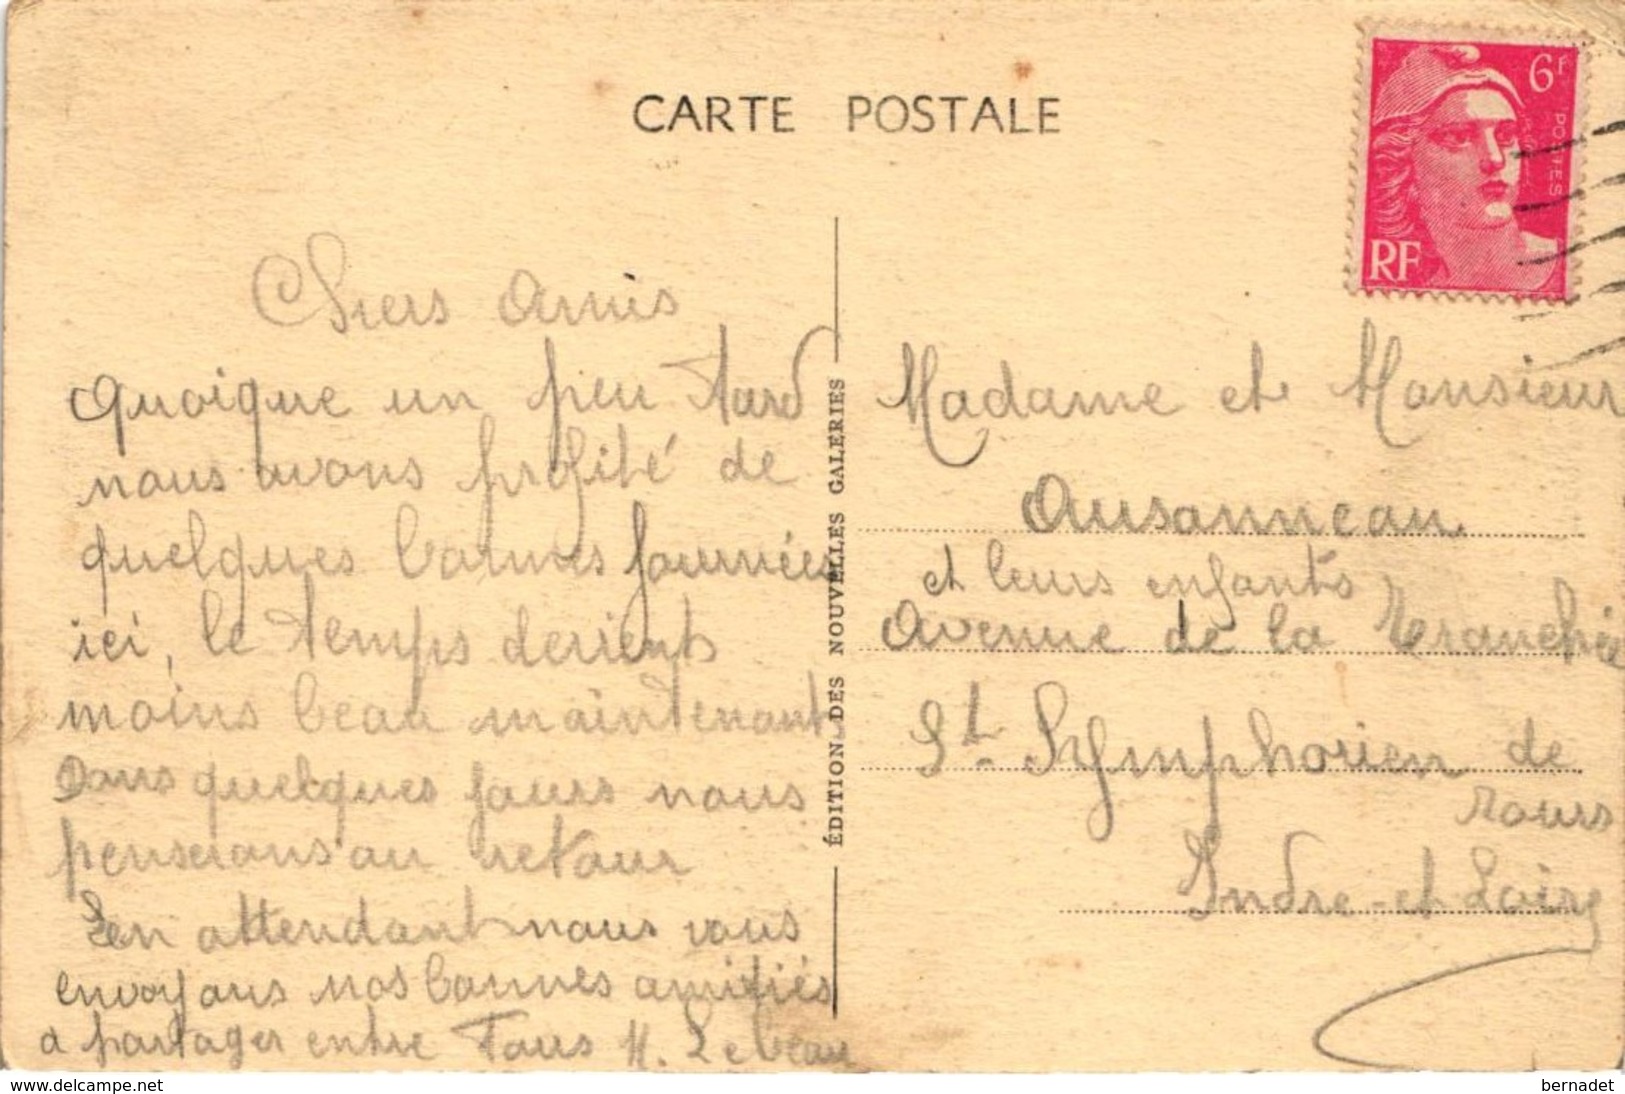 CARTE POSTALE
6F
POSTES
RF
Chers Amis
quoique un peu tard
nous avons profité de
quelques bonnes journées
ici, le temps devient
moins beau maintenant
Dans quelques jours nous
penserons au retour
En attendant nous vous
envoyons nos bonnes amitiés
a partager entre Tous M. Lebeau
ÉDITION DES NOUVELLES GALERIES
Madame et Monsieur
Ausanneau
et leurs enfants
Avenue de la Tranchée
St. Symphorien de
Tours
Indre-et Loire
www.delcampe.net
bernadet